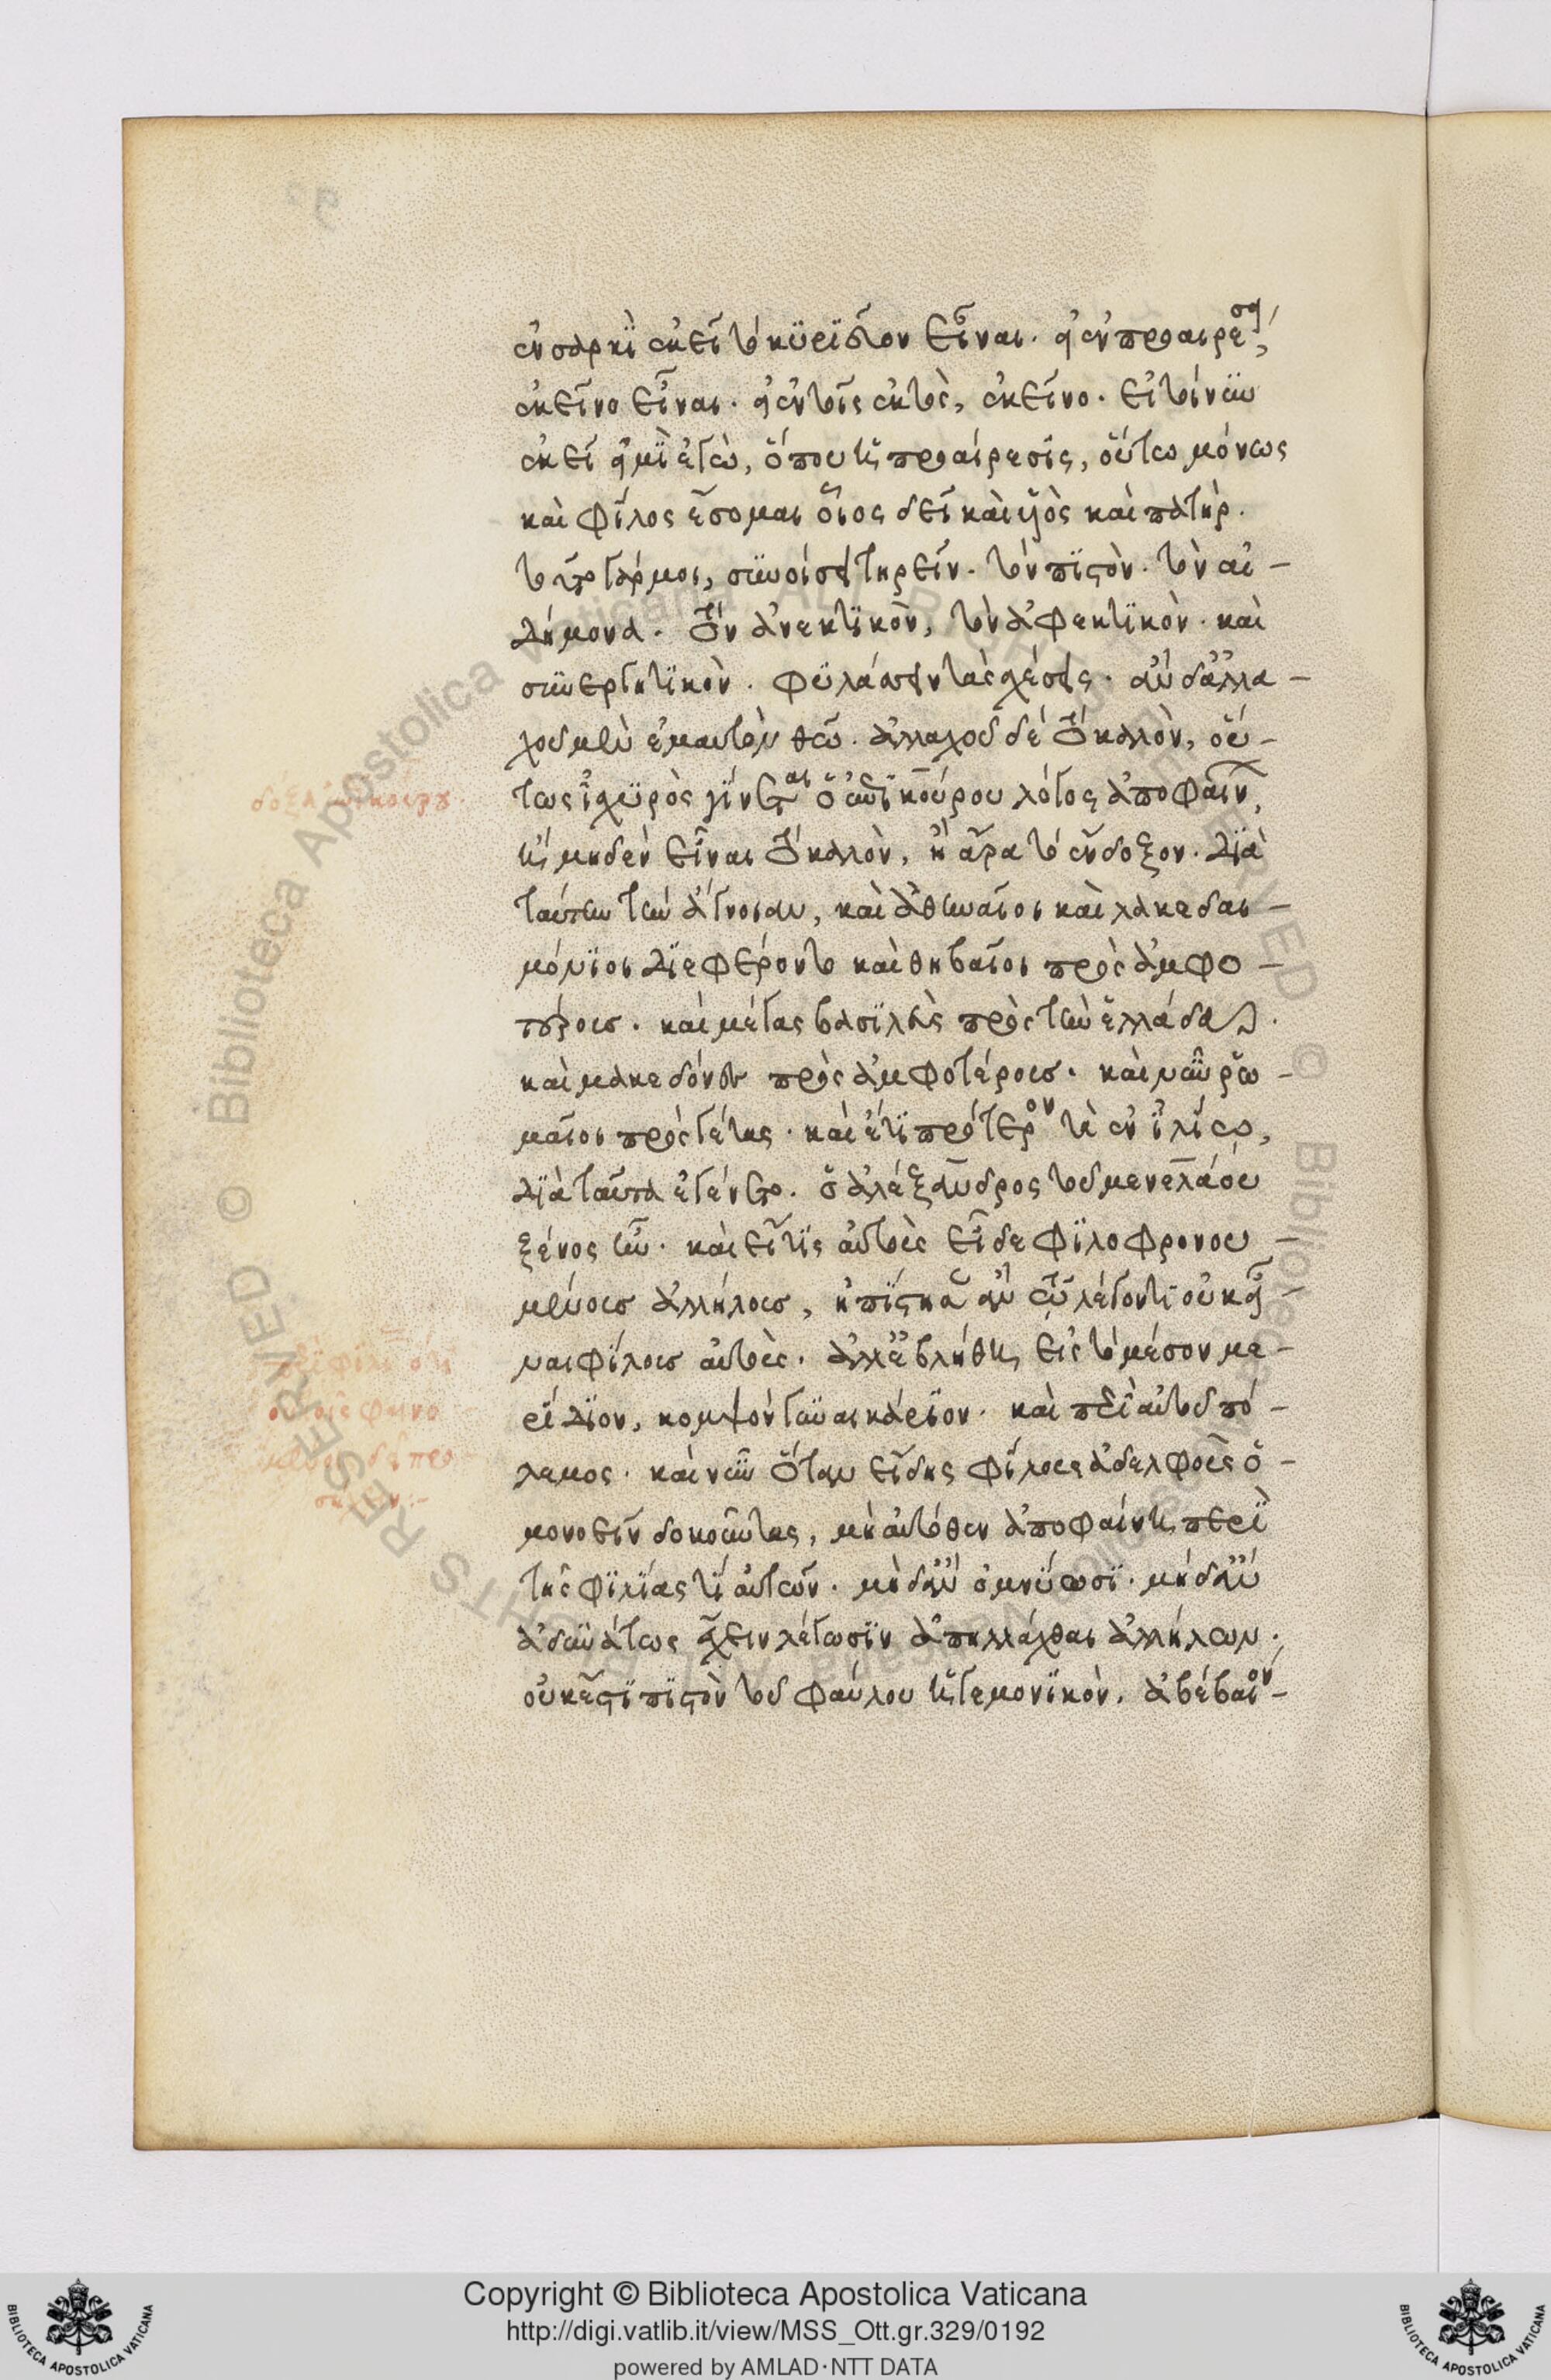 ἐν σαρκὶ ἐκεῖ τὸ κυριεῦον εἶναι. εἰ ἐν προαιρέσει,
ἐκεῖνο εἶναι. εἰ ἐν τοῖς ἐκτὸς, ἐκεῖνο. εἰ τοίνυν
ἐκεῖ εἰμὶ ἐγὼ, ὅπου ἡ προαίρεσις, οὕτω μόνως
καὶ φίλος ἔσομαι οἷος δεῖ καὶ υἱὸς καὶ πατήρ.
τοῦτο γάρ μοι, συνοίσει τηρεῖν. τὸν πιστὸν. τὸν αἰ-
δήμονα. τὸν ἀνεκτικὸν, τὸν ἀφεκτικὸν. καὶ
συνεργητικὸν. φυλάσσειν τὰς σχέσεις. ἂν δ' ἀλλα-
χοῦ μὲν ἐμαυτὸν θῶ. ἀλλαχοῦ δὲ τὸ καλὸν, οὕ-
τως ἰσχυρὸς γίνεται ὁ ἐπικούρου λόγος ἀποφαίνων,
ἢ μηδὲν εἶναι τὸ καλὸν, ἢ ἄρα τὸ ἔνδοξον. διὰ
ταύτην τὴν ἄγνοιαν, καὶ ἀθηναῖοι καὶ λακεδαι-
μόνιοι διεφέροντο καὶ θηβαῖοι πρὸς ἀμφο-
τέρους. καὶ μέγας βασιλεὺς πρὸς τὴν ἑλλάδα.
καὶ μακεδόνες πρὸς ἀμφοτέρους. καὶ νῦν ῥω-
μαῖοι πρὸς γέτας. καὶ ἔτι πρότερον τὰ ἐν ἰλίῳ,
διὰ ταῦτα ἐγένετο. ὁ ἀλέξανδρος τοῦ μενελάου
ξένος ἦν. καὶ εἴ τις αὐτοὺς εἶδε φιλοφρονου-
μένους ἀλλήλους, ἠπίστησεν ἂν τῷ λέγοντι οὐκ εἶ-
ναι φίλους αὐτούς. ἀλλ' ἐβλήθη εἰς τὸ μέσον με-
ρίδιον, κομψὸν γυναικάριον. καὶ περὶ αὐτοῦ πό-
λεμος. καὶ νῦν ὅταν εἴδης φίλους ἀδελφοὺς ὁ-
μονοεῖν δοκοῦντας, μὴ αὐτόθεν ἀποφαίνη περὶ
τῆς φιλίας τι αὐτῶν. μὴ δ' ἂν ὀμνύωσι. μὴ δ' ἂν
ἀδυνάτως ἔχειν λέγωσιν ἀπηλλάχθαι ἀλλήλων.
οὐκ ἔστι πιστὸν τοῦ φαύλου ἡγεμονικὸν. ἀβέβαιον-
δόξα ἐπικούρου.
Copyright © Biblioteca Apostolica Vaticana
http://digi.vatlib.it/view/MSS_Ott.gr.329/0192
powered by AMLAD·NTT DATA